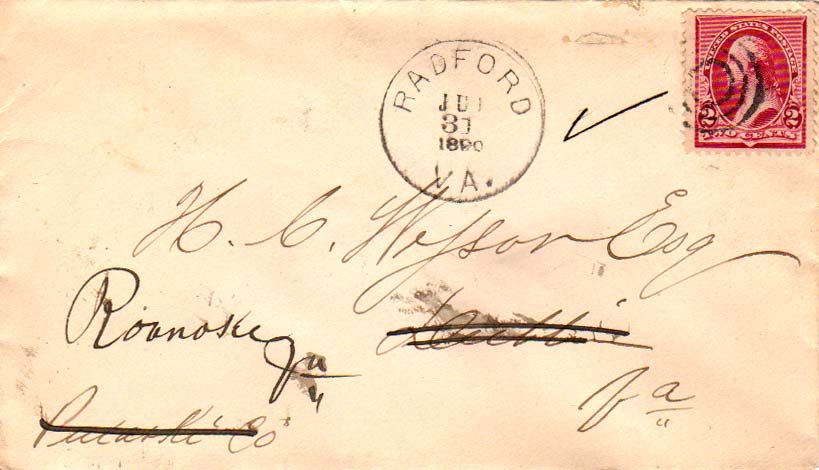 UNITED STATES POSTAGE
2 2
TWO CENTS
RADFORD
JUL
31
1890
VA.
H. C. Wysor Esq
Roanoke
Va
Va
Pulaski Co